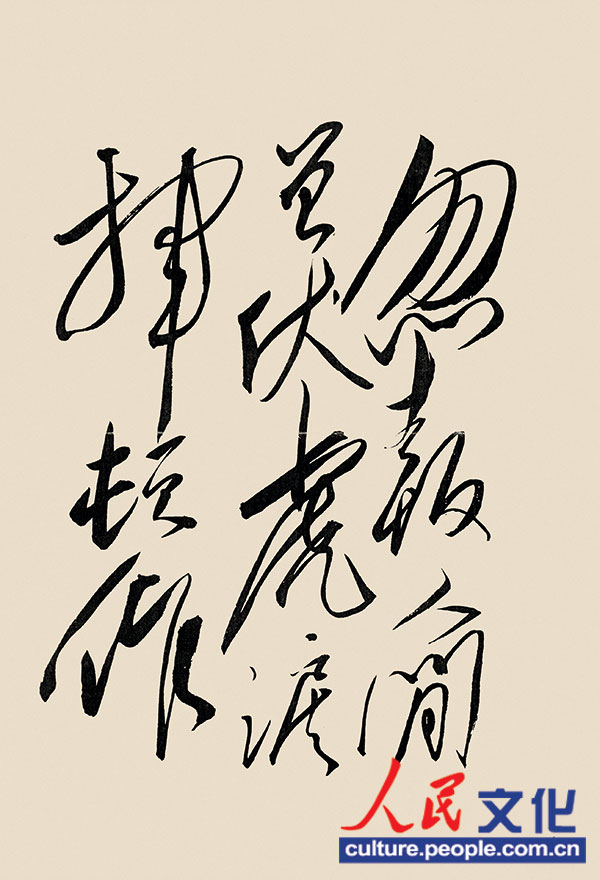 忽报人间
曾伏虎泪
飞顿作
人民 文化
culture.people.com.cn